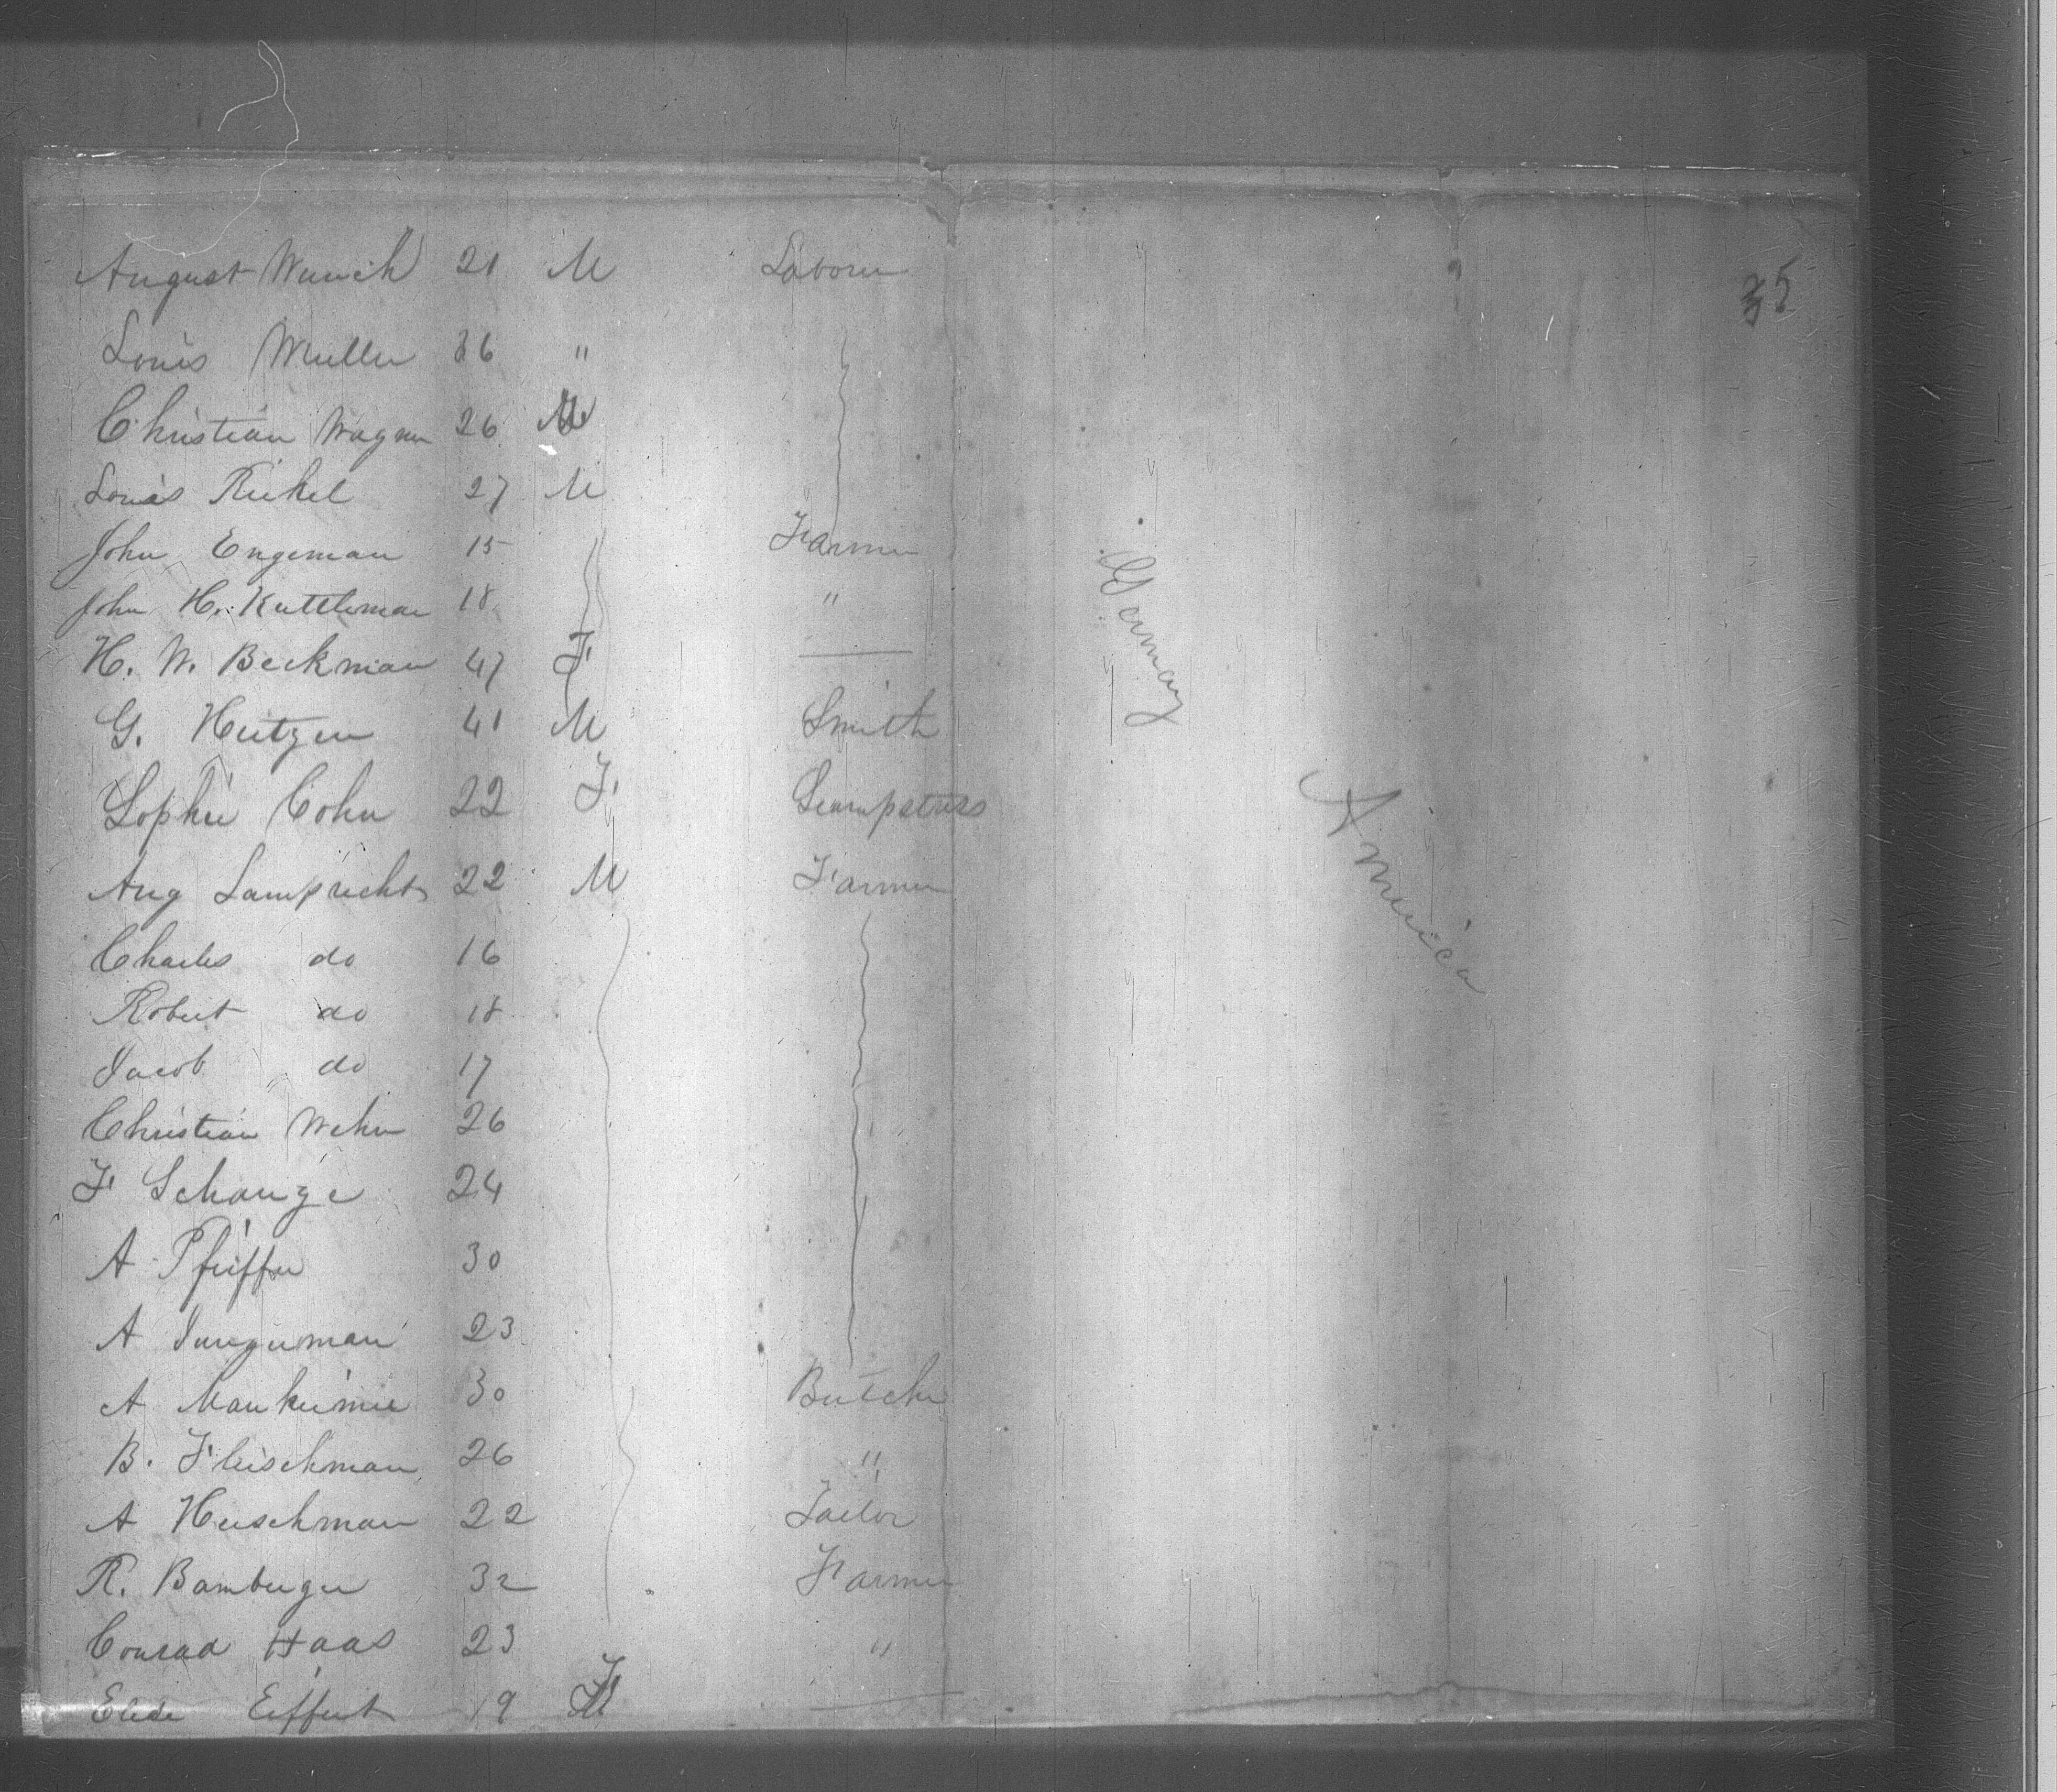 August Wunch 21 M Laborer
35
Louis Muller 36 "
Christian Wagner 26 M
Louis Rickel 27 M
John Engeman 15 Farmer
John H. Kuttleman 18 "
H. W. Beckman 47 F —
Germany
G. Heitzen 41 M Smith
Sophie Cohn 22 F Seampstress
America
Aug Lamprecht 22 M Farmer
Charles do 16
Robert do 18
Jacob do 17
Christian Wehn 26
F Schanze 24
A Pfeiffer 30
A Jungerman 23
A 30 Butcher
B. Fleischman 26 "
A Heischman 22 Tailor
R. Bamberger 32 Farmer
Conrad Haas 23 "
Eiffert 19 F —